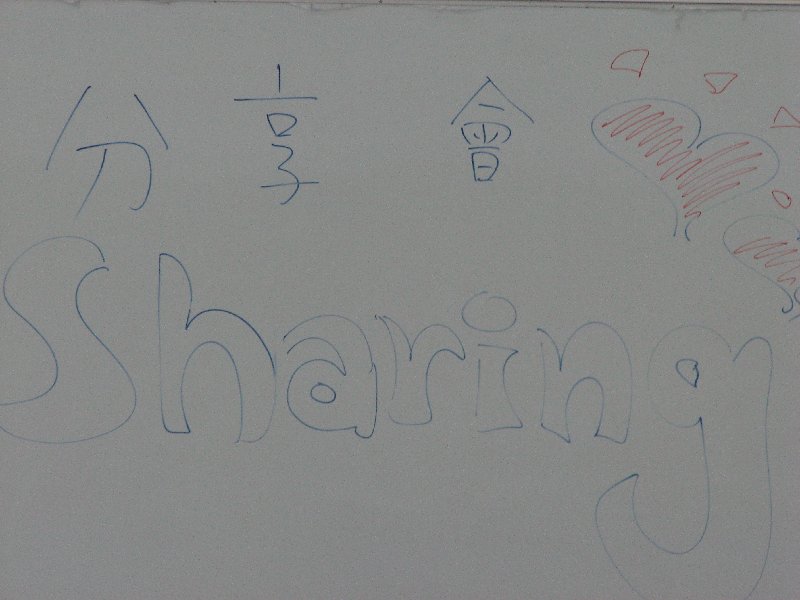 分享會
Sharing